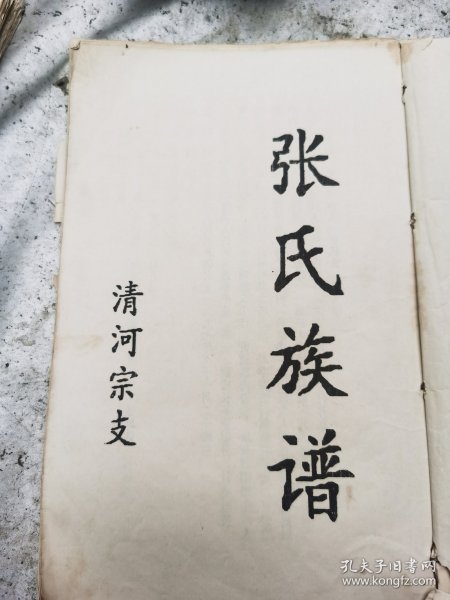 张氏族谱
清河宗支
孔夫子旧书网
www.kongfz.com